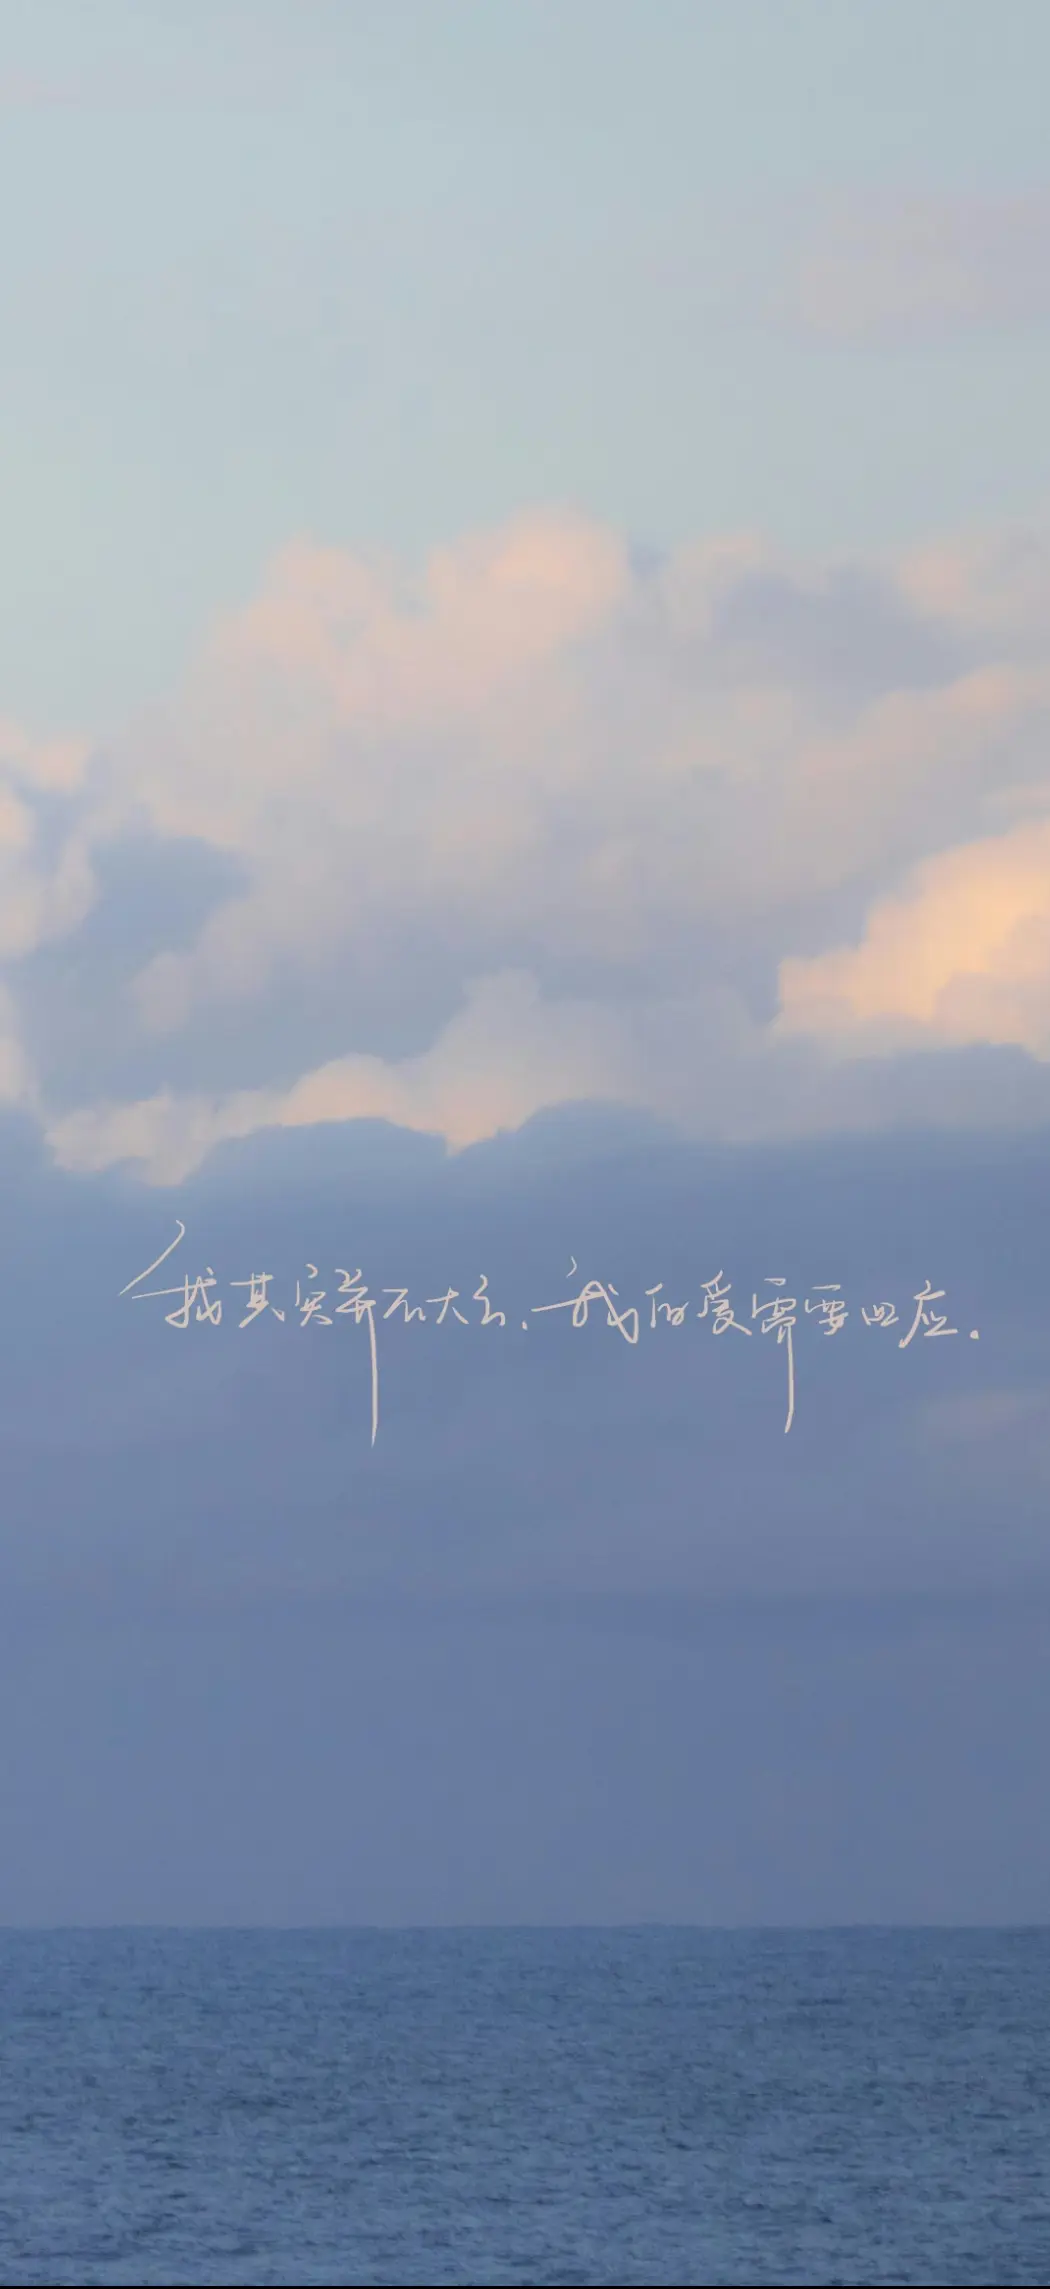 我其实并不大方、我的爱需要回应.